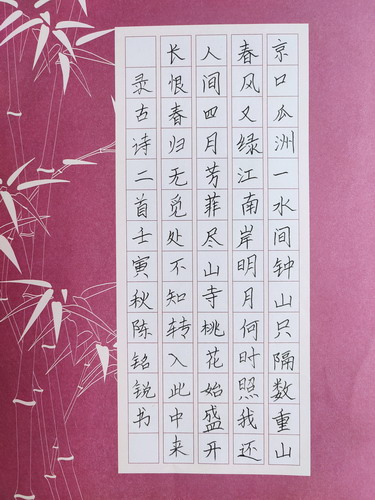 京口瓜洲一水间钟山只隔数重山
春风又绿江南岸明月何时照我还
人间四月芳菲尽山寺桃花始盛开
长恨春归无觅处不知转入此中来
录古诗二首壬寅秋陈铭锐书